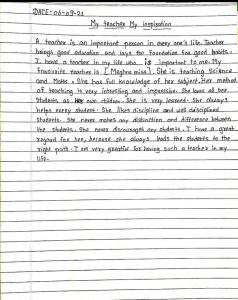 DATE - 06-09-21
My teacher My inspiration
A teacher is an important person in every one's life. Teacher
brings good education and lays the foundation for good habits.
I have a teacher in my life who is important to me. My
favourite teacher is [Meghna miss]. She is teaching Science
and Maths. She has full knowledge of her subject. Her method
of teaching is very interesting and impressive. She loves all her
students as her own children. She is very learned. She always
helps every student. She likes discipline and well disciplined
students. She never makes any distinction and difference between
the students. She never discourages any students. I have a great
regard for her, because she always leads the students to the
right path. I am very greatful for having such a teacher in my
life.